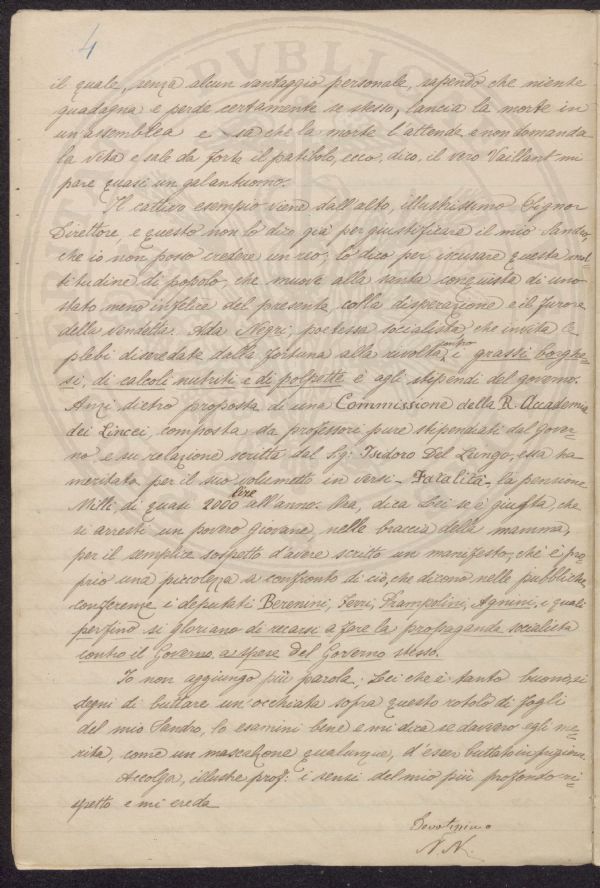 4
il quale, senza alcun vantaggio personale, sapendo che niente
guadagna e perde certamente se stesso, lancia la morte in
un'assemblea e sa che la morte l'attende e non domanda
la vita e sale da forte il patibolo, ecco, dico, il vero Vaillant mi
pare quasi un galantuomo.
Il cattivo esempio viene dall'alto, illustrissimo Signor
Direttore, e questo non lo dico già per giustificare il mio Sandro,
che io non posso credere un reo; lo dico per iscusare questa mol=
titudine di popolo, che muove alla santa conquista di uno
stato meno infelice del presente, colla disperazione e il furore
della vendetta. Ada Negri, poetessa socialista, che invita le
plebi diseredate della fortuna alla rivolta contro i grassi borghe=
si, di calcoli nutriti e di polpette è agli stipendi del governo.
Anzi dietro proposta di una Commissione della R. Accademia
dei Lincei, composta da professori pure stipendiati dal Gover=
no e su relazione scritta dal Sg: Isidoro Del Lungo, essa ha
meritato per il suo volumetto in versi - Fatalità - la pensione
Milli di quasi 2000 lire all'anno. Ora, dica Lei se è giusto, che
si arresti un povero giovane, nelle braccia della mamma,
per il semplice sospetto d'avere scritto un manifesto, ch'è pro=
prio una piccolezza a confronto di ciò, che dicono nelle pubbliche
conferenze i deputati Berenini, Ferri, Prampolini, Agnini, i quali
perfino si gloriano di recarsi a fare la propaganda socialista
contro il Governo a spese del Governo stesso.
Io non aggiungo più parola; Lei che è tanto buono, si
degni di buttare un'occhiata sopra questo rotolo di fogli
del mio Sandro, lo esamini bene e mi dica se davvero egli me=
rita, come un mascalzone qualunque, d'esser buttato in prigione.
Accolga, illustre prof: i sensi del mio più profondo ri=
spetto e mi creda
Devotissimo
N. N.